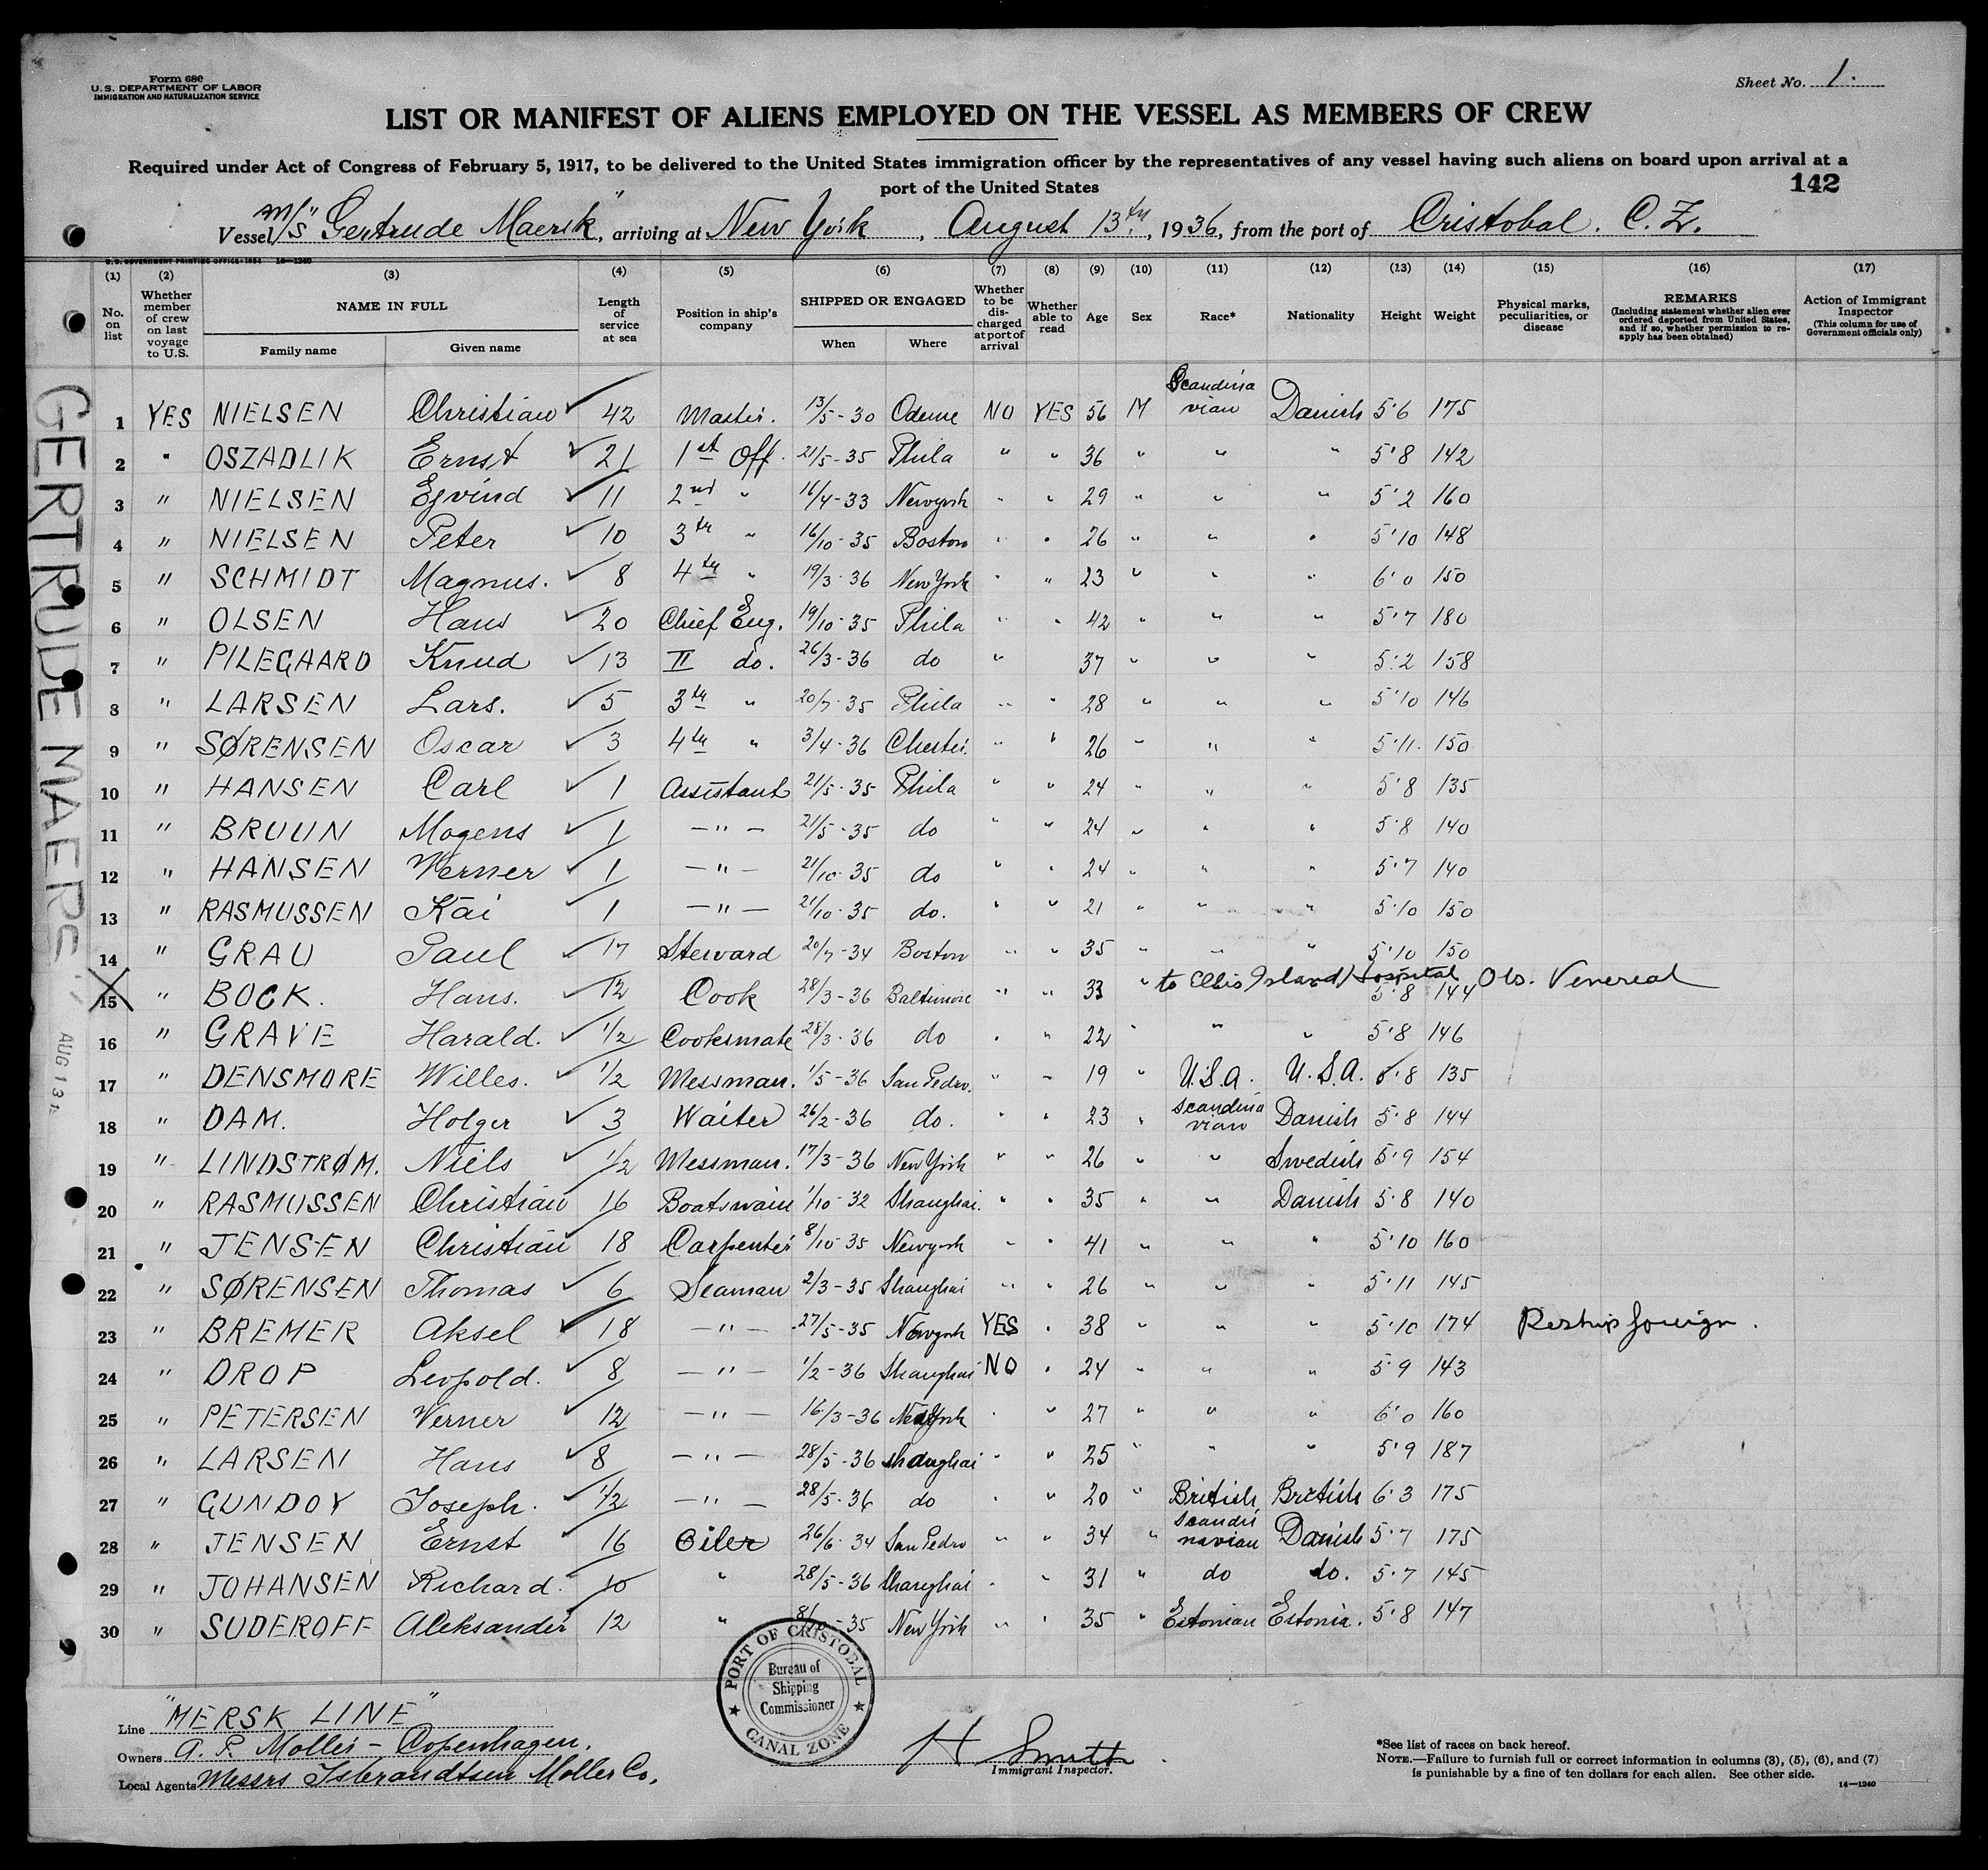 Form 680
U.S. DEPARTMENT OF LABOR
IMMIGRATION AND NATURALIZATION SERVICE
Sheet No. 1.
LIST OR MANIFEST OF ALIENS EMPLOYED ON THE VESSEL AS MEMBERS OF CREW
Required under Act of Congress of February 5, 1917, to be delivered to the United States immigration officer by the representatives of any vessel having such aliens on board upon arrival at a
port of the United States
142
Vessel M/S "Gertrude Maersk", arriving at New York, August 13th, 1936, from the port of Cristobal. C.Z.
U.S. GOVERNMENT PRINTING OFFICE: 1934 14—1240
(1) (2) (3) (4) (5) (6) (7) (8) (9) (10) (11) (12) (13) (14) (15) (16) (17)
No. on list
Whether member of crew on last voyage to U.S.
NAME IN FULL
Family name
Given name
Length of service at sea
Position in ship's company
SHIPPED OR ENGAGED
When
Where
Whether to be discharged at port of arrival
Whether able to read
Age
Sex
Race*
Nationality
Height
Weight
Physical marks, peculiarities, or disease
REMARKS
(Including statement whether alien ever ordered deported from United States, and if so, whether permission to re-apply has been obtained)
Action of Immigrant Inspector
(This column for use of Government officials only)
GERTRUDE MAERSC
AUG 13
1 YES NIELSEN Christian 42 Master. 13/5-30 Odense NO YES 56 M Scandinavian Danish 5'6 175
2 " OSZADLIK Ernst 21 1st Off. 21/5-35 Phila " " 36 " " " 5'8 142
3 " NIELSEN Ejvind 11 2nd " 16/4-33 Newyork " " 29 " " " 5'2 160
4 " NIELSEN Peter 10 3th " 16/10-35 Boston " " 26 " " " 5'10 148
5 " SCHMIDT Magnus. 8 4th " 19/3-36 New York " " 23 " " " 6'0 150
6 " OLSEN Hans 20 Chief Eng. 19/10-35 Phila " " 42 " " " 5'7 180
7 " PILEGAARD Knud 13 II do. 26/3-36 do " 37 " " " 5'2 158
8 " LARSEN Lars. 5 3th " 20/7-35 Phila " " 28 " " " 5'10 146
9 " SØRENSEN Oscar 3 4th " 3/4-36 Chester. " " 26 " " " 5'11. 150
10 " HANSEN Carl 1 Assistant 21/5-35 Phila " " 24 " " " 5'8 135
11 " BRUUN Mogens 1 —"— 21/5-35 do " " 24 " " " 5'8 140
12 " HANSEN Verner 1 —"— 21/10-35 do " " 24 " " " 5'7 140
13 " RASMUSSEN Kai 1 —"— 21/10-35 do. " " 21 " " " 5'10 150
14 " GRAU Paul 17 Steward 20/7-34 Boston " " 35 " " " 5'10 150
15 " BOCK. Hans. 12 Cook 28/3-36 Baltimore " " 33 " to Ellis Island Hospital 5'8 144 Obs. Venereal
16 " GRAVE Harald. 1/2 Cooksmate 28/3-36 do " " 22 " " " 5'8 146
17 " DENSMORE Willes. 1/2 Messman. 1/5-36 San Pedro. " " 19 " U.S.A. U.S.A. 5'8 135
18 " DAM. Holger 3 Waiter 26/2-36 do. " " 23 " Scandinavian Danish 5'8 144
19 " LINDSTRØM. Niels 1/2 Messman. 17/3-36 New York " " 26 " " Swedish 5'9 154
20 " RASMUSSEN Christian 16 Boatswain 1/10-32 Shanghai. " " 35 " " Danish 5'8 140
21 " JENSEN Christian 18 Carpenter 8/10-35 Newyork " " 41 " " " 5'10 160
22 " SØRENSEN Thomas 6 Seaman 2/3-35 Shanghai " " 26 " " " 5'11 145
23 " BREMER Aksel 18 —"— 27/5-35 Newyork YES " 38 " " " 5'10 174 Reship foreign.
24 " DROP Leopold. 8 —"— 1/2-36 Shanghai NO " 24 " " " 5'9 143
25 " PETERSEN Verner 12 —"— 16/3-36 New York " " 27 " " " 6'0 160
26 " LARSEN Hans 8 —"— 28/5-36 Shanghai " " 25 " " " 5'9 187
27 " GUNDOY Joseph. 1/2 —"— 28/5-36 do " " 20 " British British 6'3 175
28 " JENSEN Ernst 16 Oiler 26/6-34 San Pedro " " 34 " Scandinavian Danish 5'7 175
29 " JOHANSEN Richard. 10 " 28/5-36 Shanghai " " 31 " do do. 5'7 145
30 " SUDEROFF Aleksander 12 " 8/ -35 New York " " 35 " Estonian Estonia. 5'8 147
PORT OF CRISTOBAL
Bureau of Shipping Commissioner
CANAL ZONE
Line "MERSK LINE"
Owners A. P. Moller - Copenhagen.
Local Agents Messrs Isbrandtsen Moller Co.
H Smith
Immigrant Inspector.
*See list of races on back hereof.
NOTE.—Failure to furnish full or correct information in columns (3), (5), (6), and (7)
is punishable by a fine of ten dollars for each alien. See other side.
14—1240